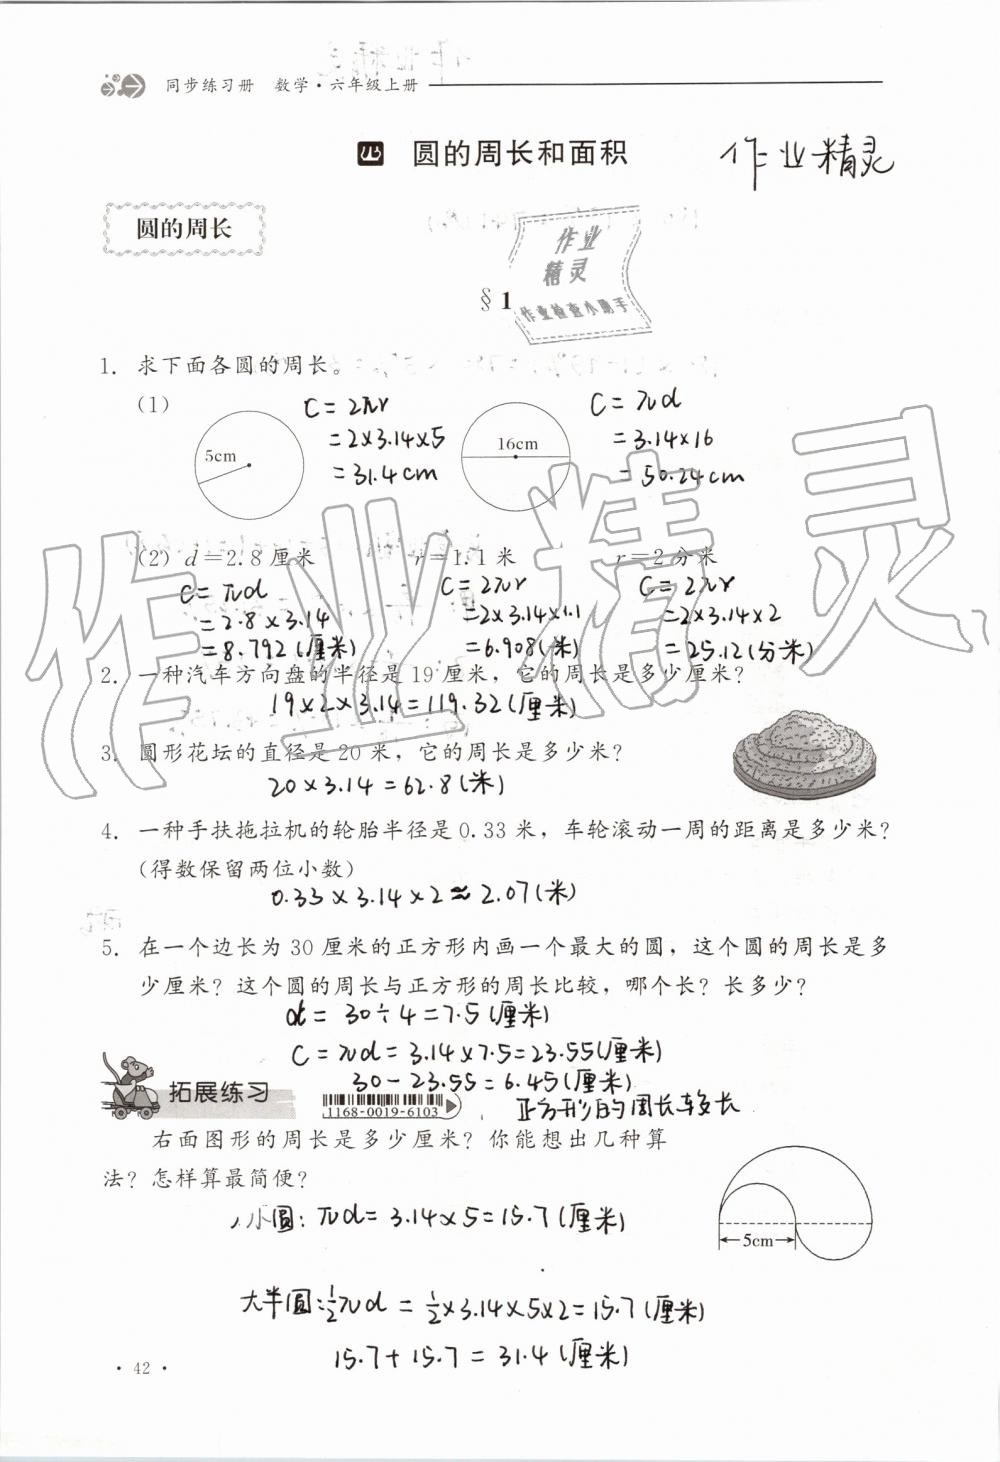 同步练习册 数学·六年级上册
四 圆的周长和面积
作业精灵
圆的周长
作业
精灵
作业检查小助手
§1
1. 求下面各圆的周长。
(1)
5cm
C=2πr
=2×3.14×5
=31.4cm
16cm
C=πd
=3.14×16
=50.24cm
(2) d=2.8厘米 r=1.1米 r=2分米
C=πd
=2.8×3.14
=8.792(厘米)
C=2πr
=2×3.14×1.1
=6.908(米)
C=2πr
=2×3.14×2
=25.12(分米)
2. 一种汽车方向盘的半径是19厘米,它的周长是多少厘米?
19×2×3.14=119.32(厘米)
3. 圆形花坛的直径是20米,它的周长是多少米?
20×3.14=62.8(米)
4. 一种手扶拖拉机的轮胎半径是0.33米,车轮滚动一周的距离是多少米?
(得数保留两位小数)
0.33×3.14×2≈2.07(米)
5. 在一个边长为30厘米的正方形内画一个最大的圆,这个圆的周长是多
少厘米?这个圆的周长与正方形的周长比较,哪个长?长多少?
d=30÷4=7.5(厘米)
C=πd=3.14×7.5=23.55(厘米)
30-23.55=6.45(厘米)
正方形的周长较长
拓展练习
1168-0019-6103
右面图形的周长是多少厘米?你能想出几种算
法?怎样算最简便?
小圆:πd=3.14×5=15.7(厘米)
5cm
大半圆:½πd=½×3.14×5×2=15.7(厘米)
15.7+15.7=31.4(厘米)
·42·
作业精灵